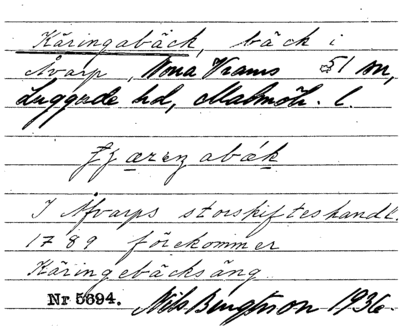 Käringabäck, bäck i
Åvarp, Norra Vrams sn,
Luggude hd, Malmöh. l.
abák
I Åfvarps storskifteshandl.
1789 förekommer
Käringebäcksäng
Nr 5694. Nils Bengtsson 1936.